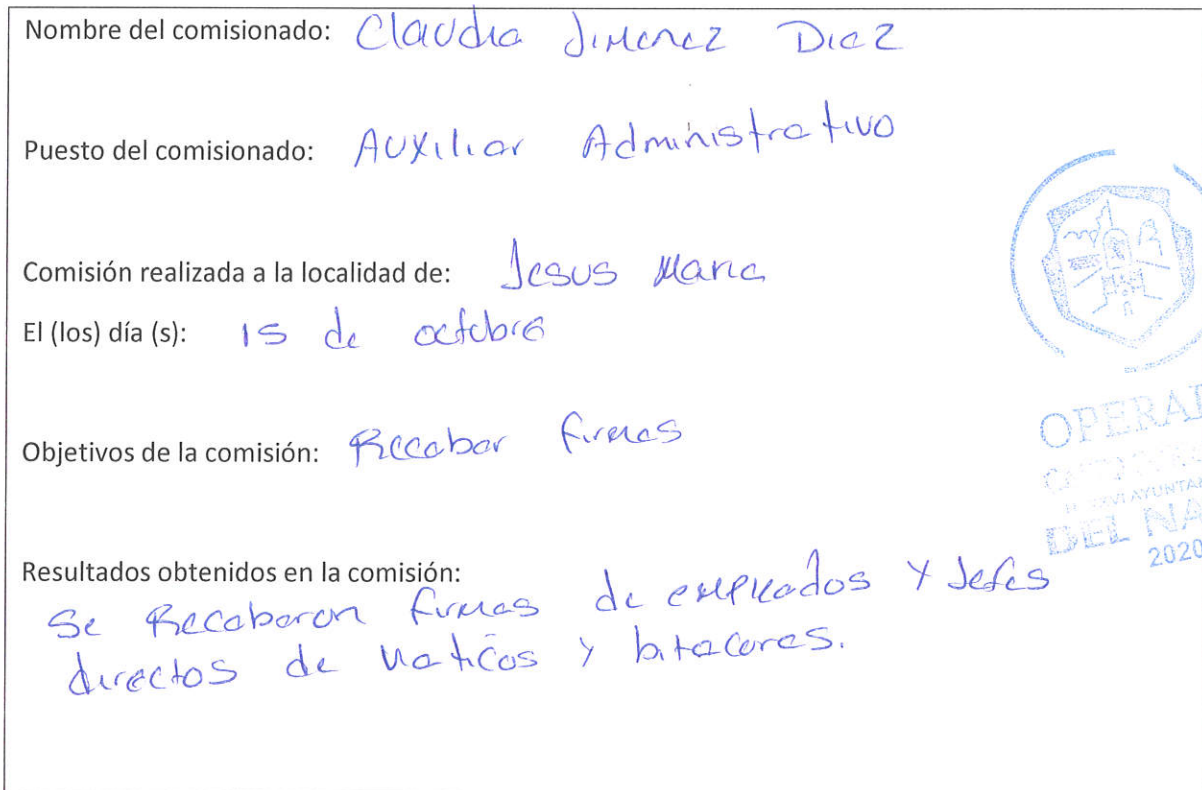 Nombre del comisionado: Claudia Jimenez Diez
Puesto del comisionado: Auxiliar Administrativo
Comisión realizada a la localidad de: Jesus Maria
El (los) día (s): 15 de octubre
Objetivos de la comisión: Recabar firmas
OPERAD
AYUNTAM
DEL NA
2020
Resultados obtenidos en la comisión:
Se Recabaron firmas de empleados y Jefes
directos de y bitacoras.